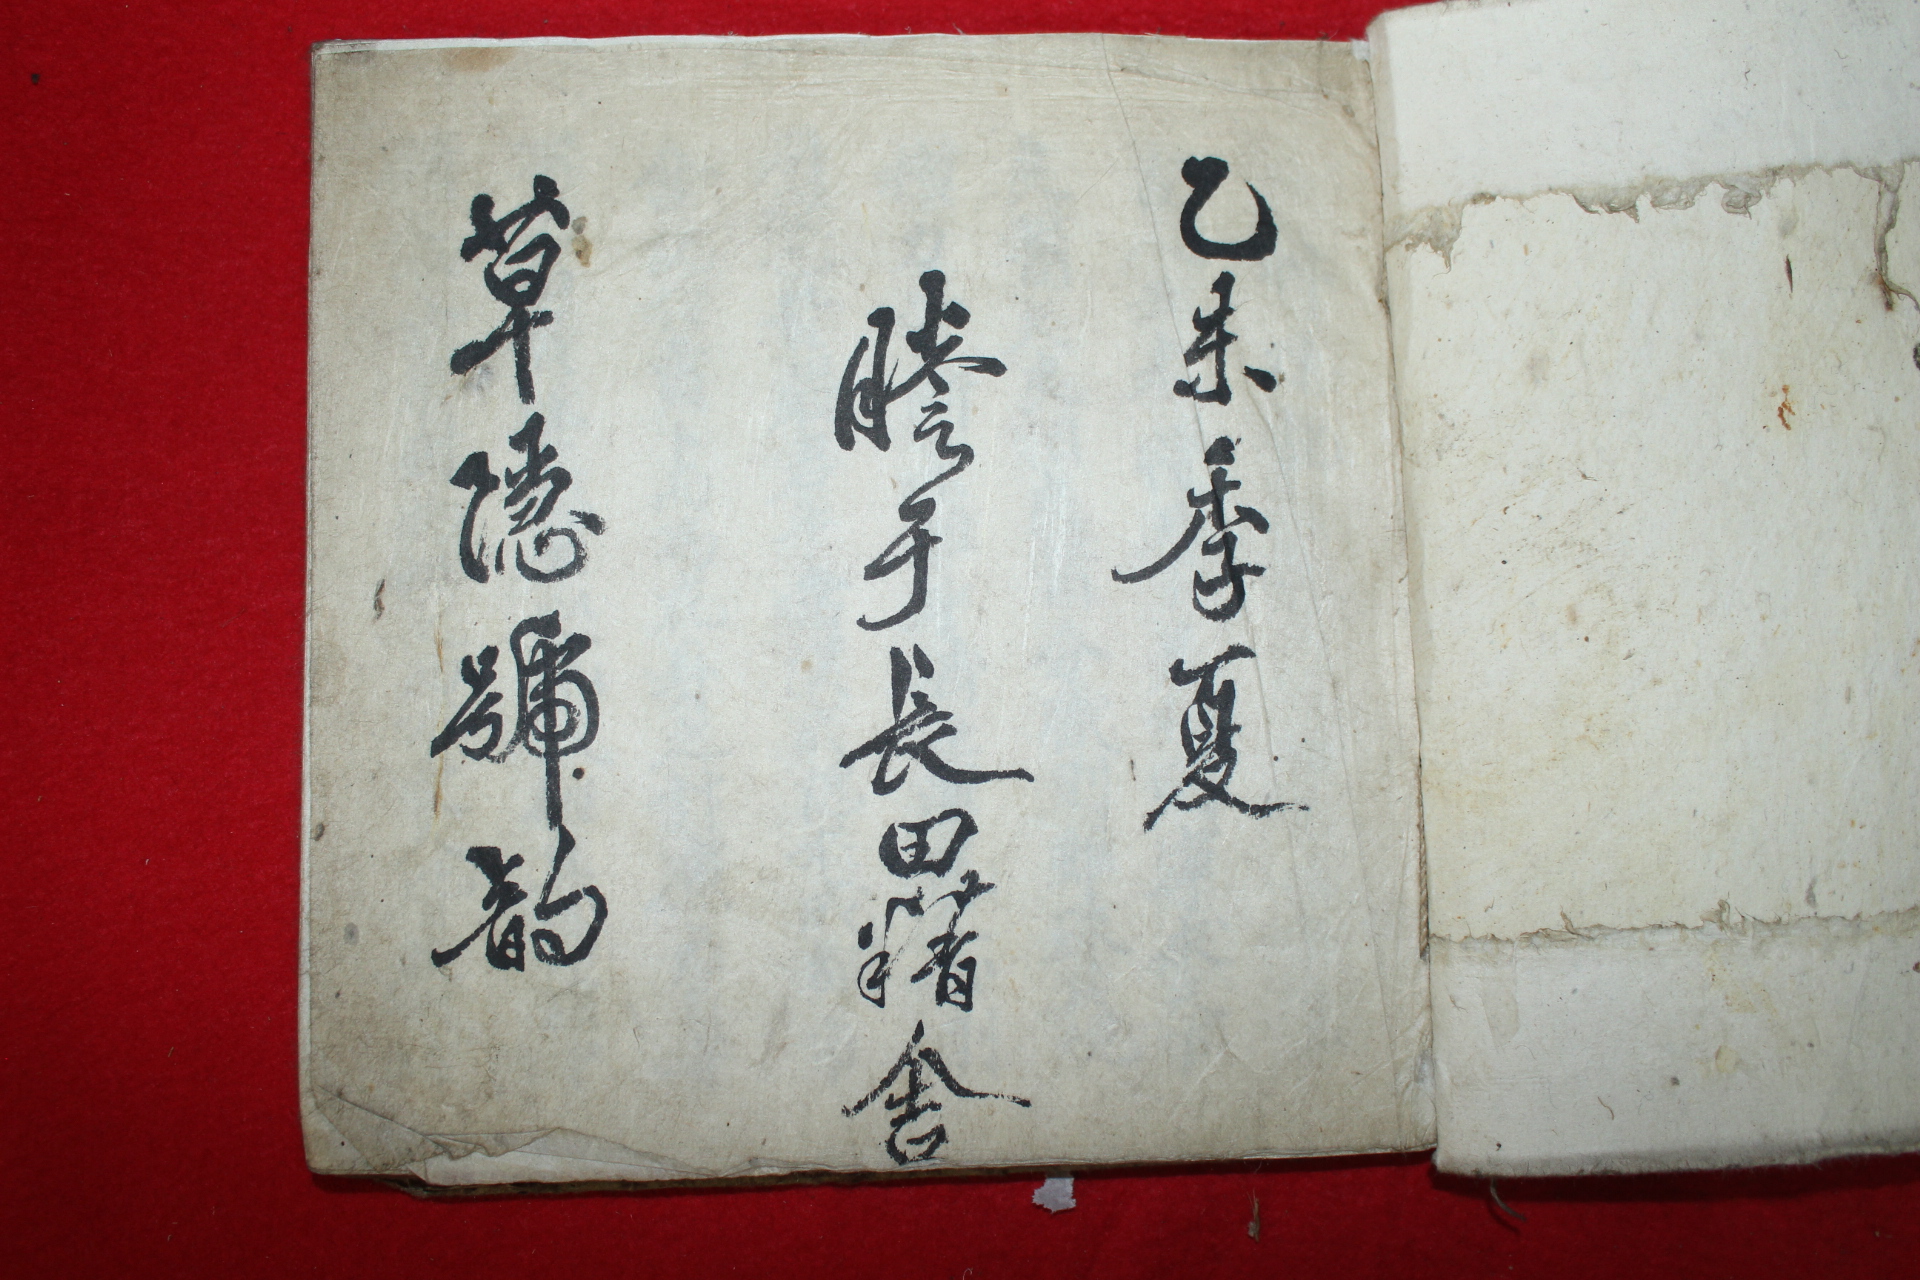 乙未季夏
謄于長田精舍
草隱號韵